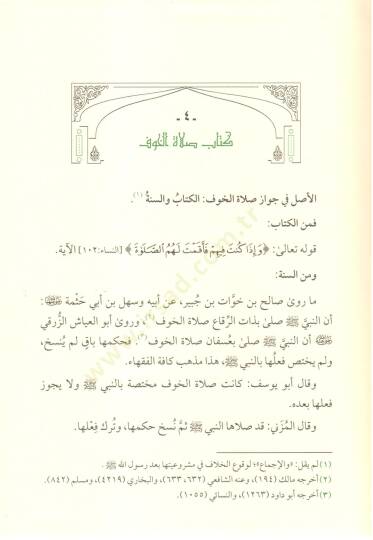 - ٤ -
كتاب صلاة الخوف
الأصل في جواز صلاة الخوف: الكتابُ والسنةُ (١).
فمن الكتاب:
قوله تعالىٰ: ﴿وَإِذَا كُنتَ فِيهِمْ فَأَقَمْتَ لَهُمُ ٱلصَّلَوٰةَ﴾ [النساء:١٠٢] الآية.
ومن السنة:
ما روىٰ صالح بن خوَّات بن جُبير، عن أبيه وسهل بن أبي حَثْمة
أن النبيَّ ﷺ صلىٰ بذات الرِّقاع صلاة الخوف (٢)، وروىٰ أبو العياش الزُّرقي
أن النبي ﷺ صلىٰ بعُسفان صلاة الخوف (٣). فحكمها باقٍ لم يُنسخ،
ولم يختص فعلُها بالنبي ﷺ، هذا مذهب كافة الفقهاء.
وقال أبو يوسف: كانت صلاة الخوف مختصة بالنبي ﷺ ولا يجوز
فعلها بعده.
وقال المُزَني: قد صلاها النبي ﷺ ثمَّ نُسخ حكمها، وتُرك فِعْلها.
(١) لم يقل: «والإجماع»؛ لوقوع الخلاف في مشروعيتها بعد رسول الله ﷺ.
(٢) أخرجه مالك (١٩٤)، وعنه الشافعي (٦٣٢، ٦٣٣)، والبخاري (٤٢١٩)، ومسلم (٨٤٢).
(٣) أخرجه أبو داود (١٢٦٣)، والنسائي (١٠٥٥).